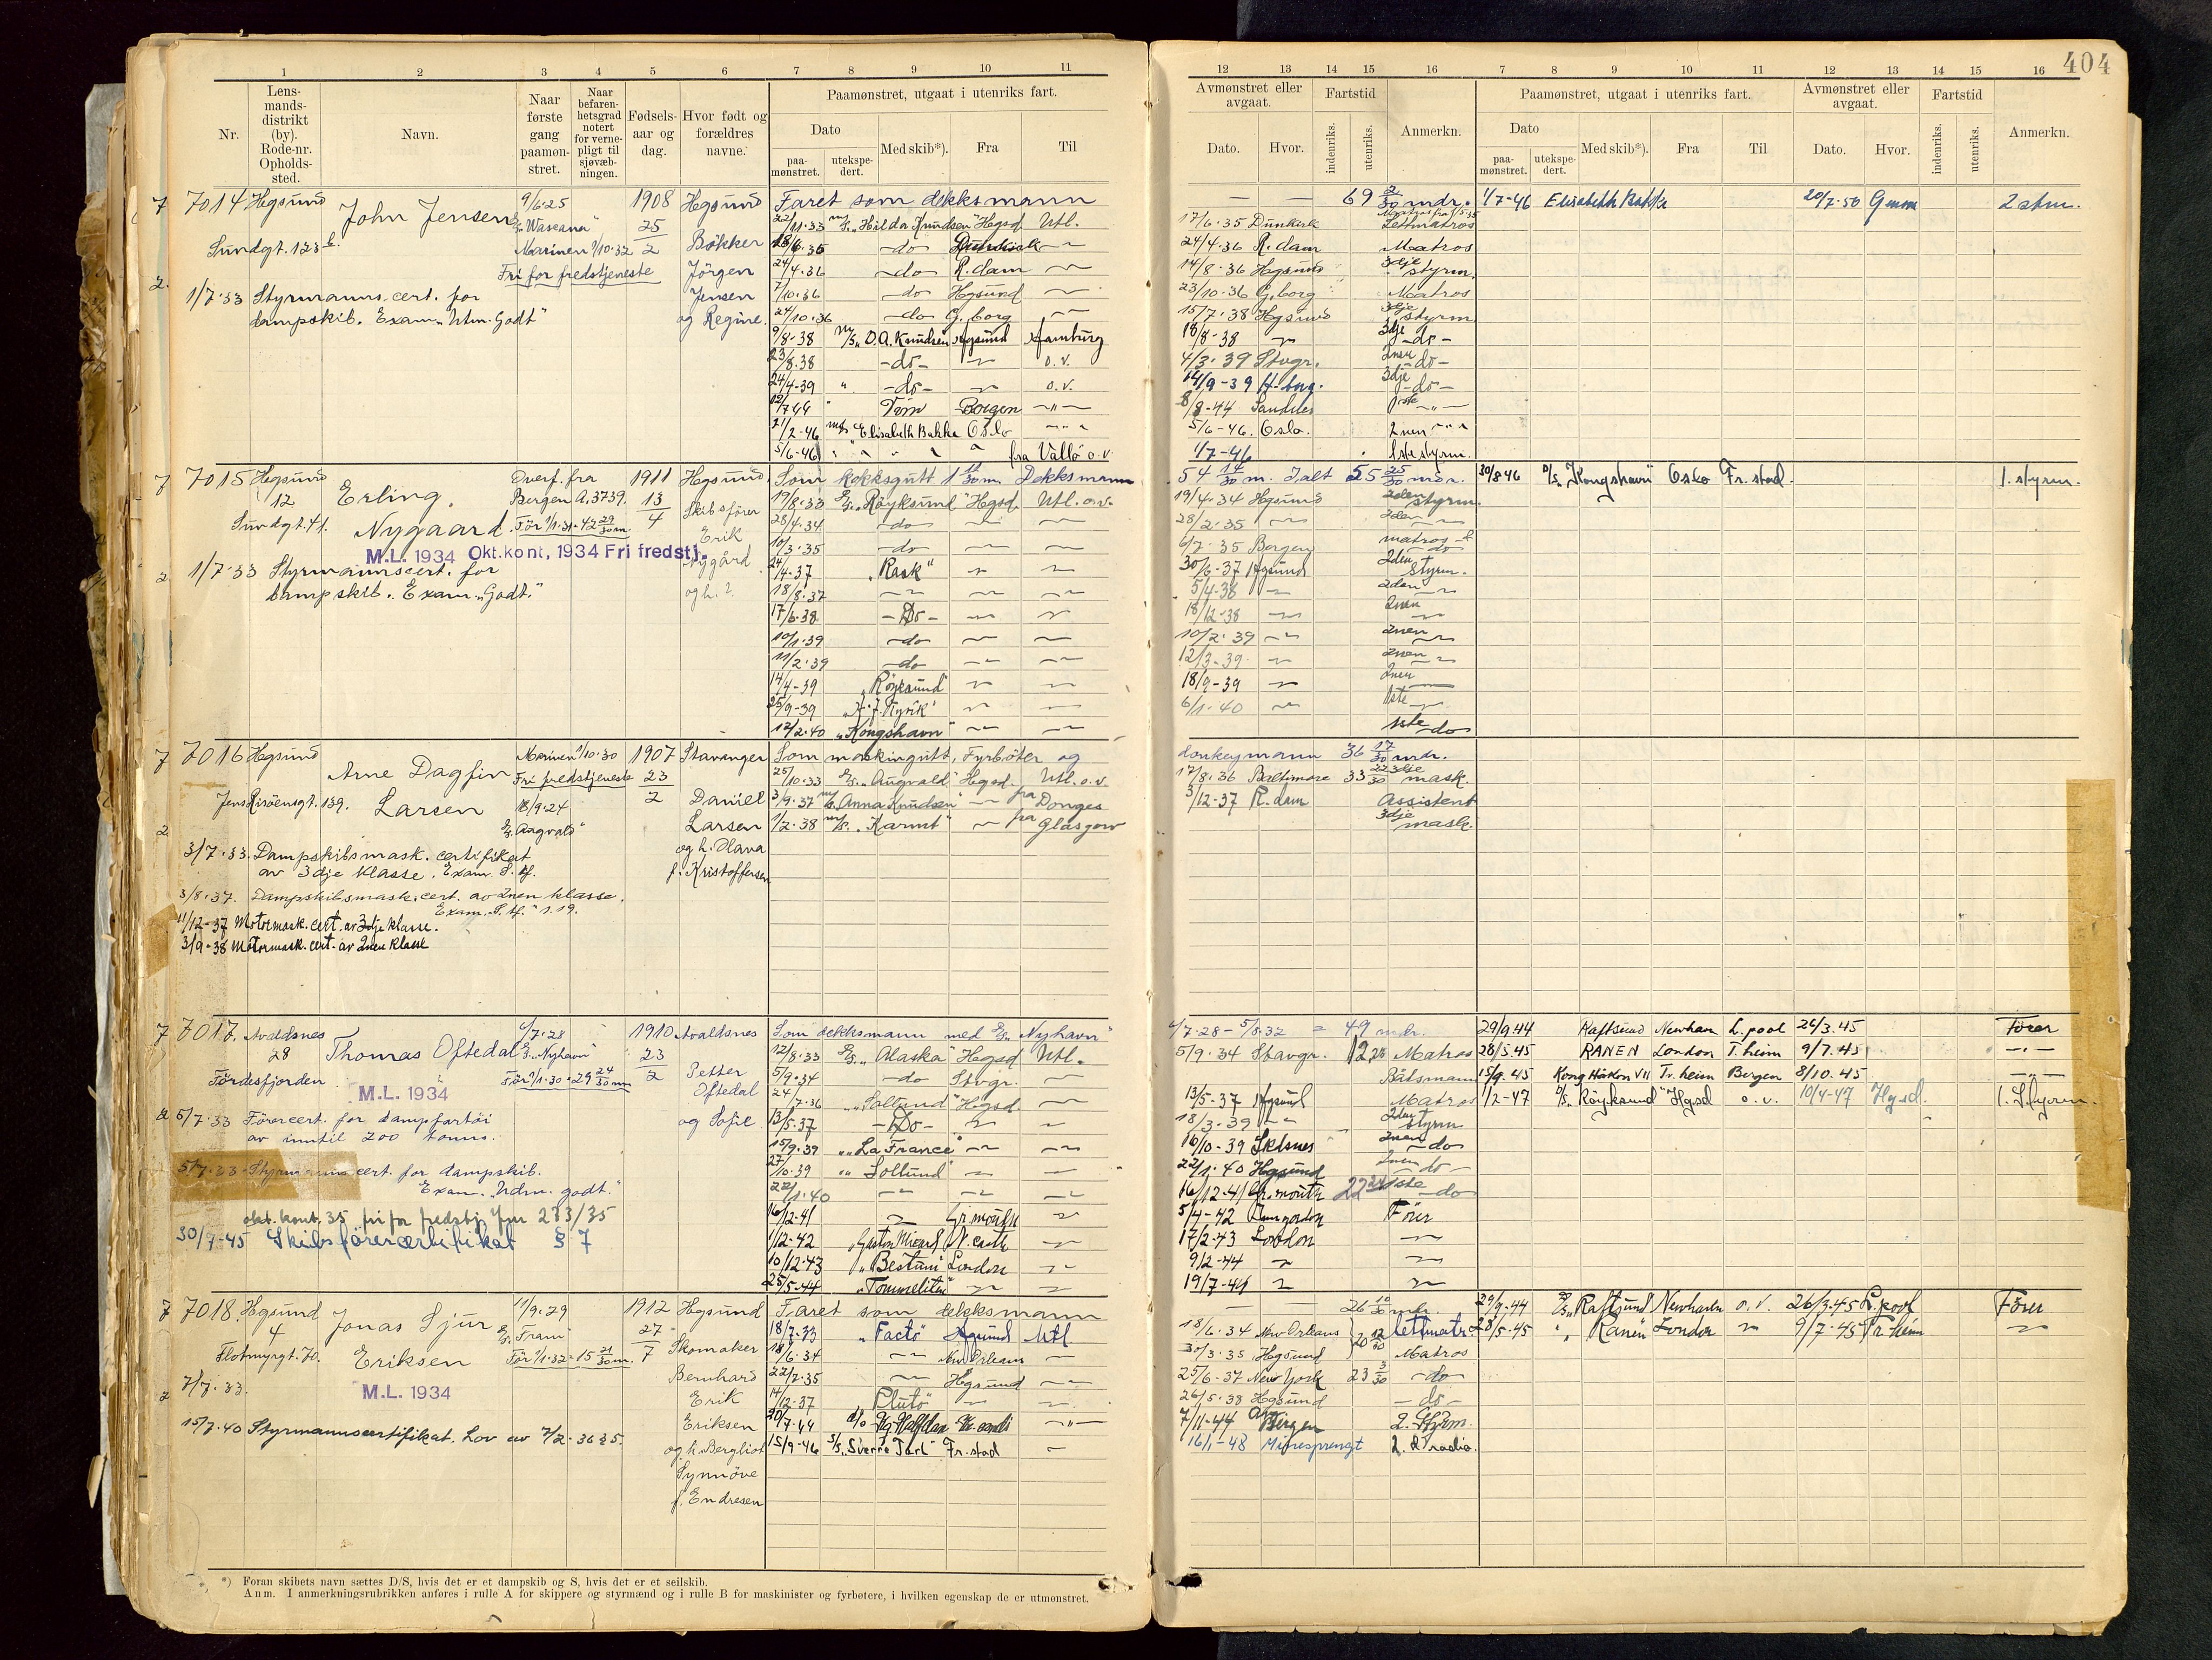 404
1 2 3 4 5 6 7 8 9 10 11
12 13 14 15 16 7 8 9 10 11 12 13 14 15 16
Nr.
Lens-
mands-
distrikt
(by).
Rode-nr.
Opholds-
sted.
Navn.
Naar
første
gang
paamøn-
stret.
Naar
befaren-
hetsgrad
notert
for verne-
pligt til
sjøvæb-
ningen.
Fødsels-
aar og
dag.
Hvor født og
forældres
navne.
Paamønstret, utgaat i utenriks fart.
Dato
paa-
mønstret.
utekspe-
dert.
Med skib*).
Fra
Til
Avmønstret eller
avgaat.
Dato.
Hvor.
Fartstid
indenriks.
utenriks.
Anmerkn.
Paamønstret, utgaat i utenriks fart.
Dato
paa-
mønstret.
utekspe-
dert.
Med skib*).
Fra
Til
Avmønstret eller
avgaat.
Dato.
Hvor.
Fartstid
indenriks.
utenriks.
Anmerkn.
7 7014 Hgsund John Jensen 9/6·25 1908 Hgsund Faret som dekksmann
"Wascana" 25/2 22/11·33 m/s. "Hilda Knudsen" Hgsd. Utl.
Sundgt. 123 b. Marinen 1/10·32 Bökker 18/6·35 -do- Dunkirk
Fri for fredstjeneste Jörgen 24/4·36 -do- R.dam
2. 1/7·33 Styrmanns.cert. for Jensen 7/10·36 -do- Hgsund
dampskib. Exam. "Utm. Godt" og Regine. 24/10·36 -do- G.borg
9/8-38 m/s. O.A. Knudsen Hgsund Hamburg
23/8.38 -do- o.v.
24/4-39 " -do- o.v.
12/7 44 Bergen
21/2-46 m/s "Elisabeth Bakke Oslo
5/6-46 fra Vallö o.v.
69 2/30 mdr. 1/7-46 Elisabeth Bakke 20/7-50 2 stm.
17/6·35 Dunkirk Lettmatros
24/4·36 R.dam Matros
14/8·36 Hgsund 3dje styrm.
23/10·36 G.borg Matros
15/7·38 Hgsund 3dje styrm
18/8-38 3dje -do-
4/3·39 Stvgr. 2nen do-
14/9-39 H-borg. 3dje -do-
8/8-44
5/6-46. Oslo. 2nen
1/7-46 1ste styrm.
7 7015 Hgsund Erling Overf. fra 1911 Hgsund Som kokksgutt 1 11/30 m. Dekksmann
12 Nygaard. Bergen A. 3739. 13/4 Skibsförer 19/8·33 "Röyksund" Hgsd. Utl. o.v.
Sundgt. 41. För 1/1·31·42 29/30 m Erik 28/4·34 -do-
M.L. 1934 Okt.kont, 1934 Fri fredstj. Nygård 10/3·35 -do-
2 1/7·33 Styrmannscert. for og h. ?. 24/4-37 "Rask"
dampskib. Exam. "Godt." 18/8·37
17/6·38 -Do-
10/1·39 -do-
11/2·39 -do-
14/4-39 "Röyksund"
25/9-39
12/2·40 "Kongshavn"
54 14/30 m. Ialt 55 25/30 mdr. 30/8 46 "Kongshavn Oslo Fr.stad. 1. styrm.
19/4·34 Hgsund 2den styrm.
28/2·35 2den
6/7·35 Bergen matros
30/6-37 Hgsund 2den styrm.
5/4-38 2den
18/12·38 2nen
10/2·39 2nen
12/3-39 2nen
18/9-39 2nen
6/1·40 1ste
1ste do
7 7016 Hgsund Arne Dagfin Marinen 1/10·30 1907 Stavanger Som maskingutt, Fyrböter og
Larsen Fri fredstjeneste 23/2 25/10·33 "Augvald" Hgsd. Utl. o.v.
Jens Risöensgt. 139. 18/9·24 Daniel 3/9·37 m/s. Anna Knudsen" fra Donges
2 "Augvald" Larsen 1/2·38 m/s. "Karmt" fra Glasgow
3/7·33. Dampskibsmask. certifikat og h. Hava
av 3dje Klasse. Exam. f. Kristoffersen
3/8·37. Dampskibsmask. cert. av 2nen klasse.
Exam. 1.19.
11/12-37 Motormask. cert. av 3dje klasse.
3/9·38 Motormask. cert. av 2nen klasse
donkeymann 36 17/30 mdr.
17/8·36 Baltimore 33 22/30 3dje mask.
3/12-37 R.dam Assistent
3dje mask.
7 7017. Avaldsnes Thomas Oftedal 6/7·28 1910 Avaldsnes Som dekksmann med "Nyhavn"
28 "Nyhavn" 23/2 12/8·33 "Alaska" Hgsd Utl.
Fördesfjorden M.L. 1934 För 1/1·30·29 24/30 mn Petter 5/9·34 -do- Stvgr.
Oftedal 24/7·36 "Sollund" Hgsd.
2 5/7·33 Förercert. for dampfartöi og Sofie 13/5·37 -Do-
av inntil 200 tonns. 15/9·39 "La France"
5/7·33 Styrmannscert. for dampskib. 27/10·39 "Sollund"
Exam. "Udm. godt." 22/1·40
okt. kont. 35 fri for fredstj. 283/35 16/12-41
30/7-45 Skibsförercertifikat § 7 1/12-42
10/12·43 "Bestum London
25/5-44 "Tommeliten"
6/7·28 - 5/8·32 = 49 mdr. 29/9 44 Raftsund Newhaven L.pool 26/3.45 Förer
5/9·34 Stavgr. Matros 28/5.45 RANEN London T.heim 9/7.45
Båtsmann 15/9.45 Kong Håkon VII Tr.heim Bergen 8/10.45
13/5-37 Hgsund Matros 1/2-47 "Röyksund" Hgsd o.v. 10/4-47 Hgsd. 1. Styrm.
18/3·39 2den styrm
16/10-39 2nen do
22/1·40 Hgsund 2nen do
16/12-41 1ste do
5/4-42 Förer
17/2-43 London
9/2-44
19/7-44
7 7018. Hgsund Jonas Sjur 11/9·29 1912 Hgsund Faret som dekksmann
4 Eriksen "Fram" 27/7 Skomaker 18/7-33 "Facto" Hgsund Utl
Flotmyrgt. 70. För 1/1·32=15 21/30 m. Bernhard 18/6·34 New Orleans
7/7·33. M.L. 1934 Erik 22/7·35 Hgsund
2 Eriksen 14/12·37 "Pluto"
15/7·40 Styrmannscertifikat. Lov av 7/2-36 § 5. og h. Bergliot 20/7-44
Synnöve 15/9-46 S/s. "Sverre Jarl" Fr.stad
f. Endresen
26 10/30 mdr. 29/9-44 "Raftsund Newhaven o.v. 26/3.45 L.pool Förer
18/6·34 New Orleans 20 12/30 lettmatr. 28/5-45 "Ranen London 9/7·45 Tr.heim
30/3·35 Hgsund Matros
25/6·37 New York 23 3/30 -do-
26/5·38 Hgsund -do-
7/11-44 Bergen 2. Styrm.
16/1-48 Minesprengt
*) Foran skibets navn sættes D/S, hvis det er et dampskib og S, hvis det er et seilskib.
Anm. I anmerkningsrubrikken anføres i rulle A for skippere og styrmænd og i rulle B for maskinister og fyrbøtere, i hvilken egenskap de er utmønstret.